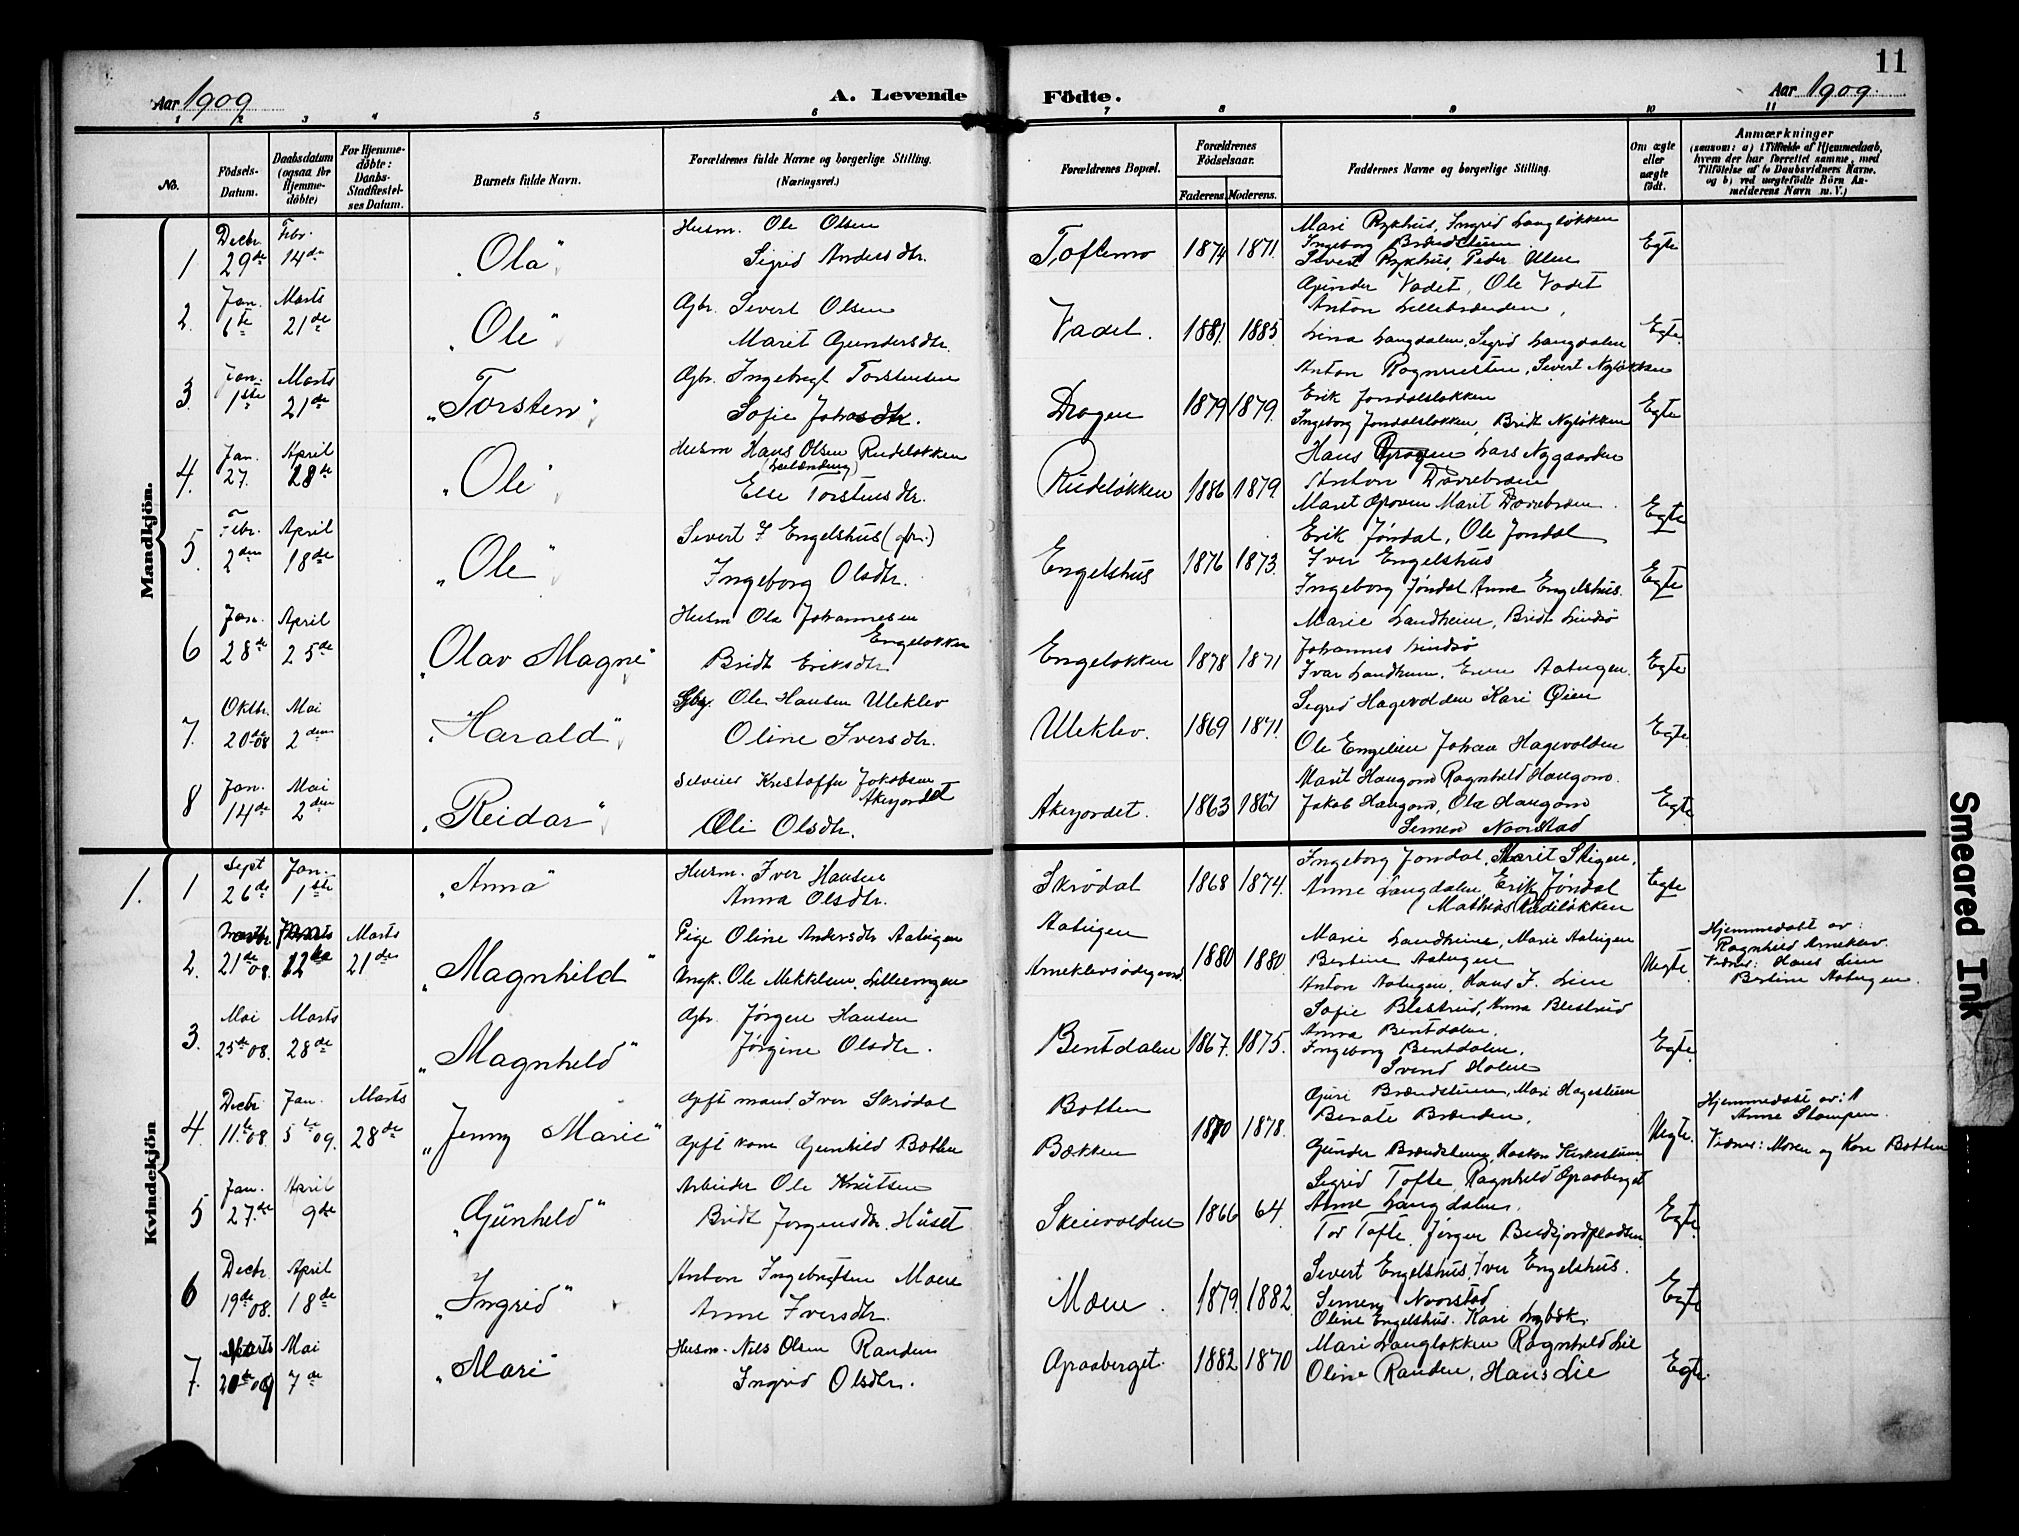 11
Aar 1909
A. Levende Födte.
Aar 1909.
1 2 3 4 5 6 7 8 9 10 11
No.
Födsels-Datum.
Daabsdatum (ogsaa for Hjemme-döbte)
For Hjemme-döbte: Daabs-Stadfæstel-ses Datum.
Barnets fulde Navn.
Forældrenes fulde Navne og borgerlige Stilling.
(Næringsvei.)
Forældrenes Bopæl.
Forældrenes Födselsaar.
Faderens. Moderens.
Faddernes Navne og borgerlige Stilling.
Om ægte eller uægte födt.
Anmærkninger
(saasom: a) i Tilfælde af Hjemmedaab, hvem der har forrettet samme, med Tilföielse af to Daabsvidners Navne. og b) ved uægtefödte Börn An-melderens Navn m. V.)
Mandkjön.
1 Decbr. 29de Febr. 14de "Ola" Husm. Ole Olsen
Sigrid Andersdtr. Toftemo 1874 1871. Mari Rykhus, Ingrid Langløkken
Ingeborg Brændstuen
Sivert Rykhus, Peder Olsen Egte
2. Jan. 6te Marts 21de "Ole" Gbr. Sivert Olsen
Marit Gundersdtr. Vadet. 1881. 1885 Gunder Vadet, Ole Vadet
Anton Lillebrænden,
Lina Langdalen, Sigrid Langdalen Egte.
3. Jan. 1ste Marts 21de "Torsten" Gbr. Ingebregt Torstensen
Sofie Johnsdtr. Drogen 1879 1879. Anton Rognrusten, Sivert Nyløkken
Erik Jøndalsløkken
Ingeborg Jøndalsløkken, Bridt Nyløkken Egte
4. Jan. 27. April 28de "Ole" Husm Hans Olsen Rudeløkken
Else Torstensdtr. Rudeløkken 1886 1879 Hans Lars Nygaarden
Anton
Marit Marit Egte
5. Febr. 2den April 18de "Ole" Sivert I Engelshus (gbr.)
Ingeborg Olsdtr. Engelshus 1876 1873. Erik Jøndal, Ole Jøndal
Iver Engelshus
Ingeborg Jøndal Anne Engelshus. Egte
6 Jan. 28de April 25de "Olav Magne" Husm Ole Johannesen
Engeløkken
Bridt Eriksdtr. Engeløkken 1878 1871 Marie Landheim, Bridt Lindsø
Johannes Lindsø
Ivar Landheim, Even Aalingen. Egte
7. Oktbr. 20de 08 Mai 2den "Harald" Gbr. Ole Hansen Uleklev
Oline Iversdtr. Uleklev. 1869 1871. Sigrid Hagevolden Kari Øien
Ole Engelien Johan Hagevolden Egte.
8 Jan. 14de Mai 2den "Reidar" Selveier Kristoffer Jakobsen
Akerjordet
Oli Olsdtr. Akerjordet. 1863 1867 Marit Haugom Ragnhild Haugom.
Jakob Haugom, Ole Haugom
Simen Noorstad Egte.
Kvindekjön
1. 1 Sept 26de Jan. 1ste "Anna" Husm. Iver Hansen
Anna Olsdtr. Skrødal 1868 1874. Ingeborg Jøndal, Marit Stigen,
Anne Langdalen, Erik Jøndal
Mathias Rudeløkken Egte
2. 21de 08. 12te Marts 21de "Magnhild" Pige Oline Andersdtr Aalingen
Ungk. Ole Mikkelsen, Lilleengen Aalingen
Arneklevsødegaard 1880 1880. Marie Landheim, Marie Aalingen
Bertine Aalingen
Anton Aalingen, Hans J. Lien Uegte. Hjemmedøbt av:
Ragnhild Arneklev.
Vidner: Hans Lien
Bertine Aalingen.
3. Mai 25de 08. Marts 28de "Magnhild" Gbr. Jørgen Hansen
Jørgine Olsdtr. Bentdalen 1867. 1875. Sofie Blestrud, Anna Blestrud
Anna Bentdalen,
Ingeborg Bentdalen,
Svend Holen Egte.
4. Decbr. 11te 08 Jan. 5te 09. Marts 28de "Jenny Marie" Gift mand Iver Skrødal
Gift kone Gunhild Botten Botten
Bækken 1870 1878. Guri Brændstuen, Mari Hagestuen
Berate Brænden,
Gunder Brændstuen, Haakon Kirkestuen Uegte. Hjemmedøbt av:
Anne Stampen.
Vidner: Moren og Kari Botten
5 Jan. 27de April 9de "Gunhild" Arbeider Ole Knutsen
Bridt Jørgensdtr. Huset Skeievolden 1866 64. Sigrid Tofte, Ragnhild Graaberget
Anne Langdalen,
Tor Tofte, Jørgen Egte.
6 Decbr. 19de 08. April 18de "Ingrid" Anton Ingebrigtsen Moen
Anne Iversdtr. Moen. 1879. 1882. Sivert Engelshus, Iver Engelshus.
Simen Noorstad
Oline Engelshus. Kari Lybæk. Egte
7. Marts 20de 09 Mai 7de "Mari" Husm. Nils Olsen Randen
Ingrid Olsdtr. Graaberget. 1882 1870 Mari Langløkken Ragnhild Lie
Oline Randen, Hans Lie Egte.
Smeared Ink